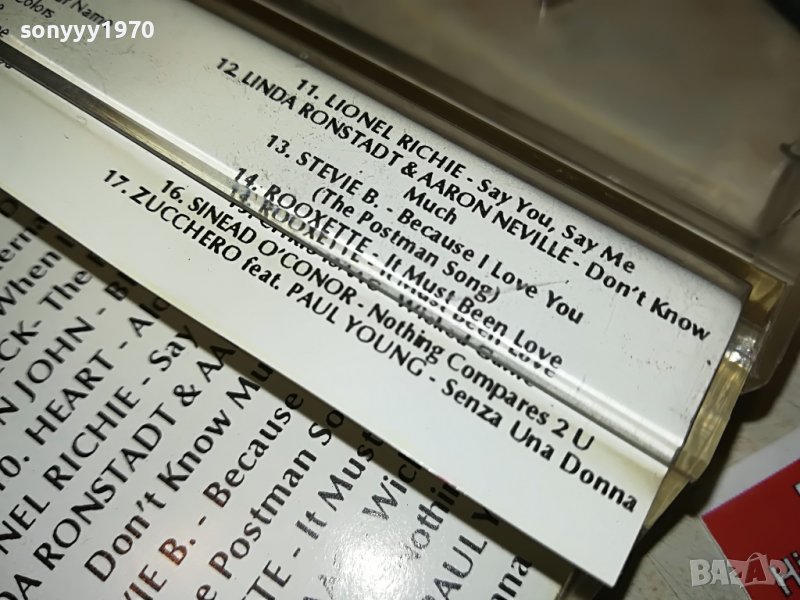 sonyyy1970
Colors
11. LIONEL RICHIE - Say You, Say Me
12. LINDA RONSTADT & AARON NEVILLE - Don't Know
Much
13. STEVIE B. - Because I Love You
(The Postman Song)
14. ROOXETTE - It Must Been Love
16. SINEAD O'CONOR - Nothing Compares 2 U
17. ZUCCHERO feat. PAUL YOUNG - Senza Una Donna
When I
JOHN -
10. HEART -
RICHIE - Say
RONSTADT &
Don't Know
B. - Because
Postman
- It Must
PAUL
BAZAR